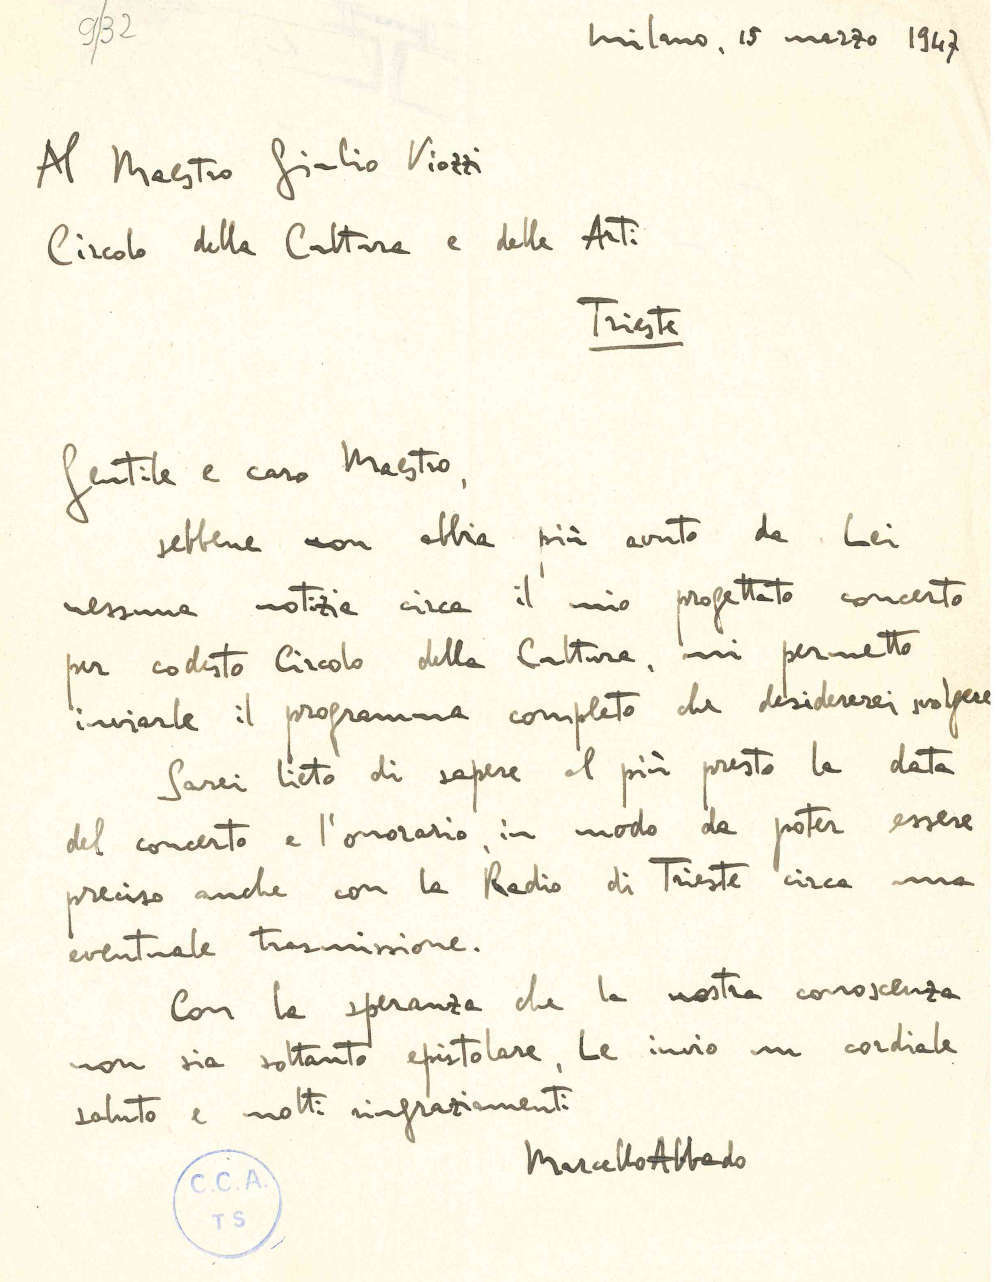 9/32
Milano, 15 marzo 1947
Al Maestro Giulio Viozzi
Circolo della Cultura e delle Arti
Trieste
Gentile e caro Maestro,
sebbene non abbia più avuto da Lei
nessuna notizia circa il mio progettato concerto
per codesto Circolo della Cultura, mi permetto
inviarle il programma completo che desidererei svolgere
Sarei lieto di sapere al più presto la data
del concerto e l'onorario, in modo da poter essere
preciso anche con la Radio di Trieste circa una
eventuale trasmissione.
Con la speranza che la nostra conoscenza
non sia soltanto epistolare, Le invio un cordiale
saluto e molti ringraziamenti
Marcello Abbado
C.C.A.
TS